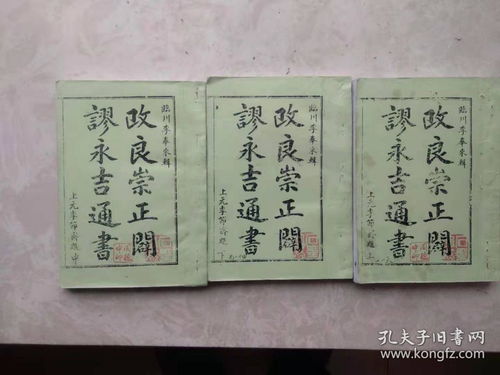 臨川李奉來輯
改良崇正闢
謬永吉通書
上元李節齋題 中
臨川李奉來輯
改良崇正闢
謬永吉通書
上元李節齋題 下
臨川李奉來輯
改良崇正闢
謬永吉通書
上元李節齋題 上
孔夫子旧书网
www.kongfz.com